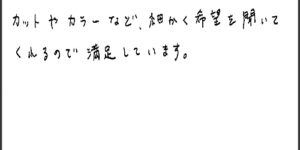 カットやカラーなど、細かく希望を聞いて
くれるので満足しています。